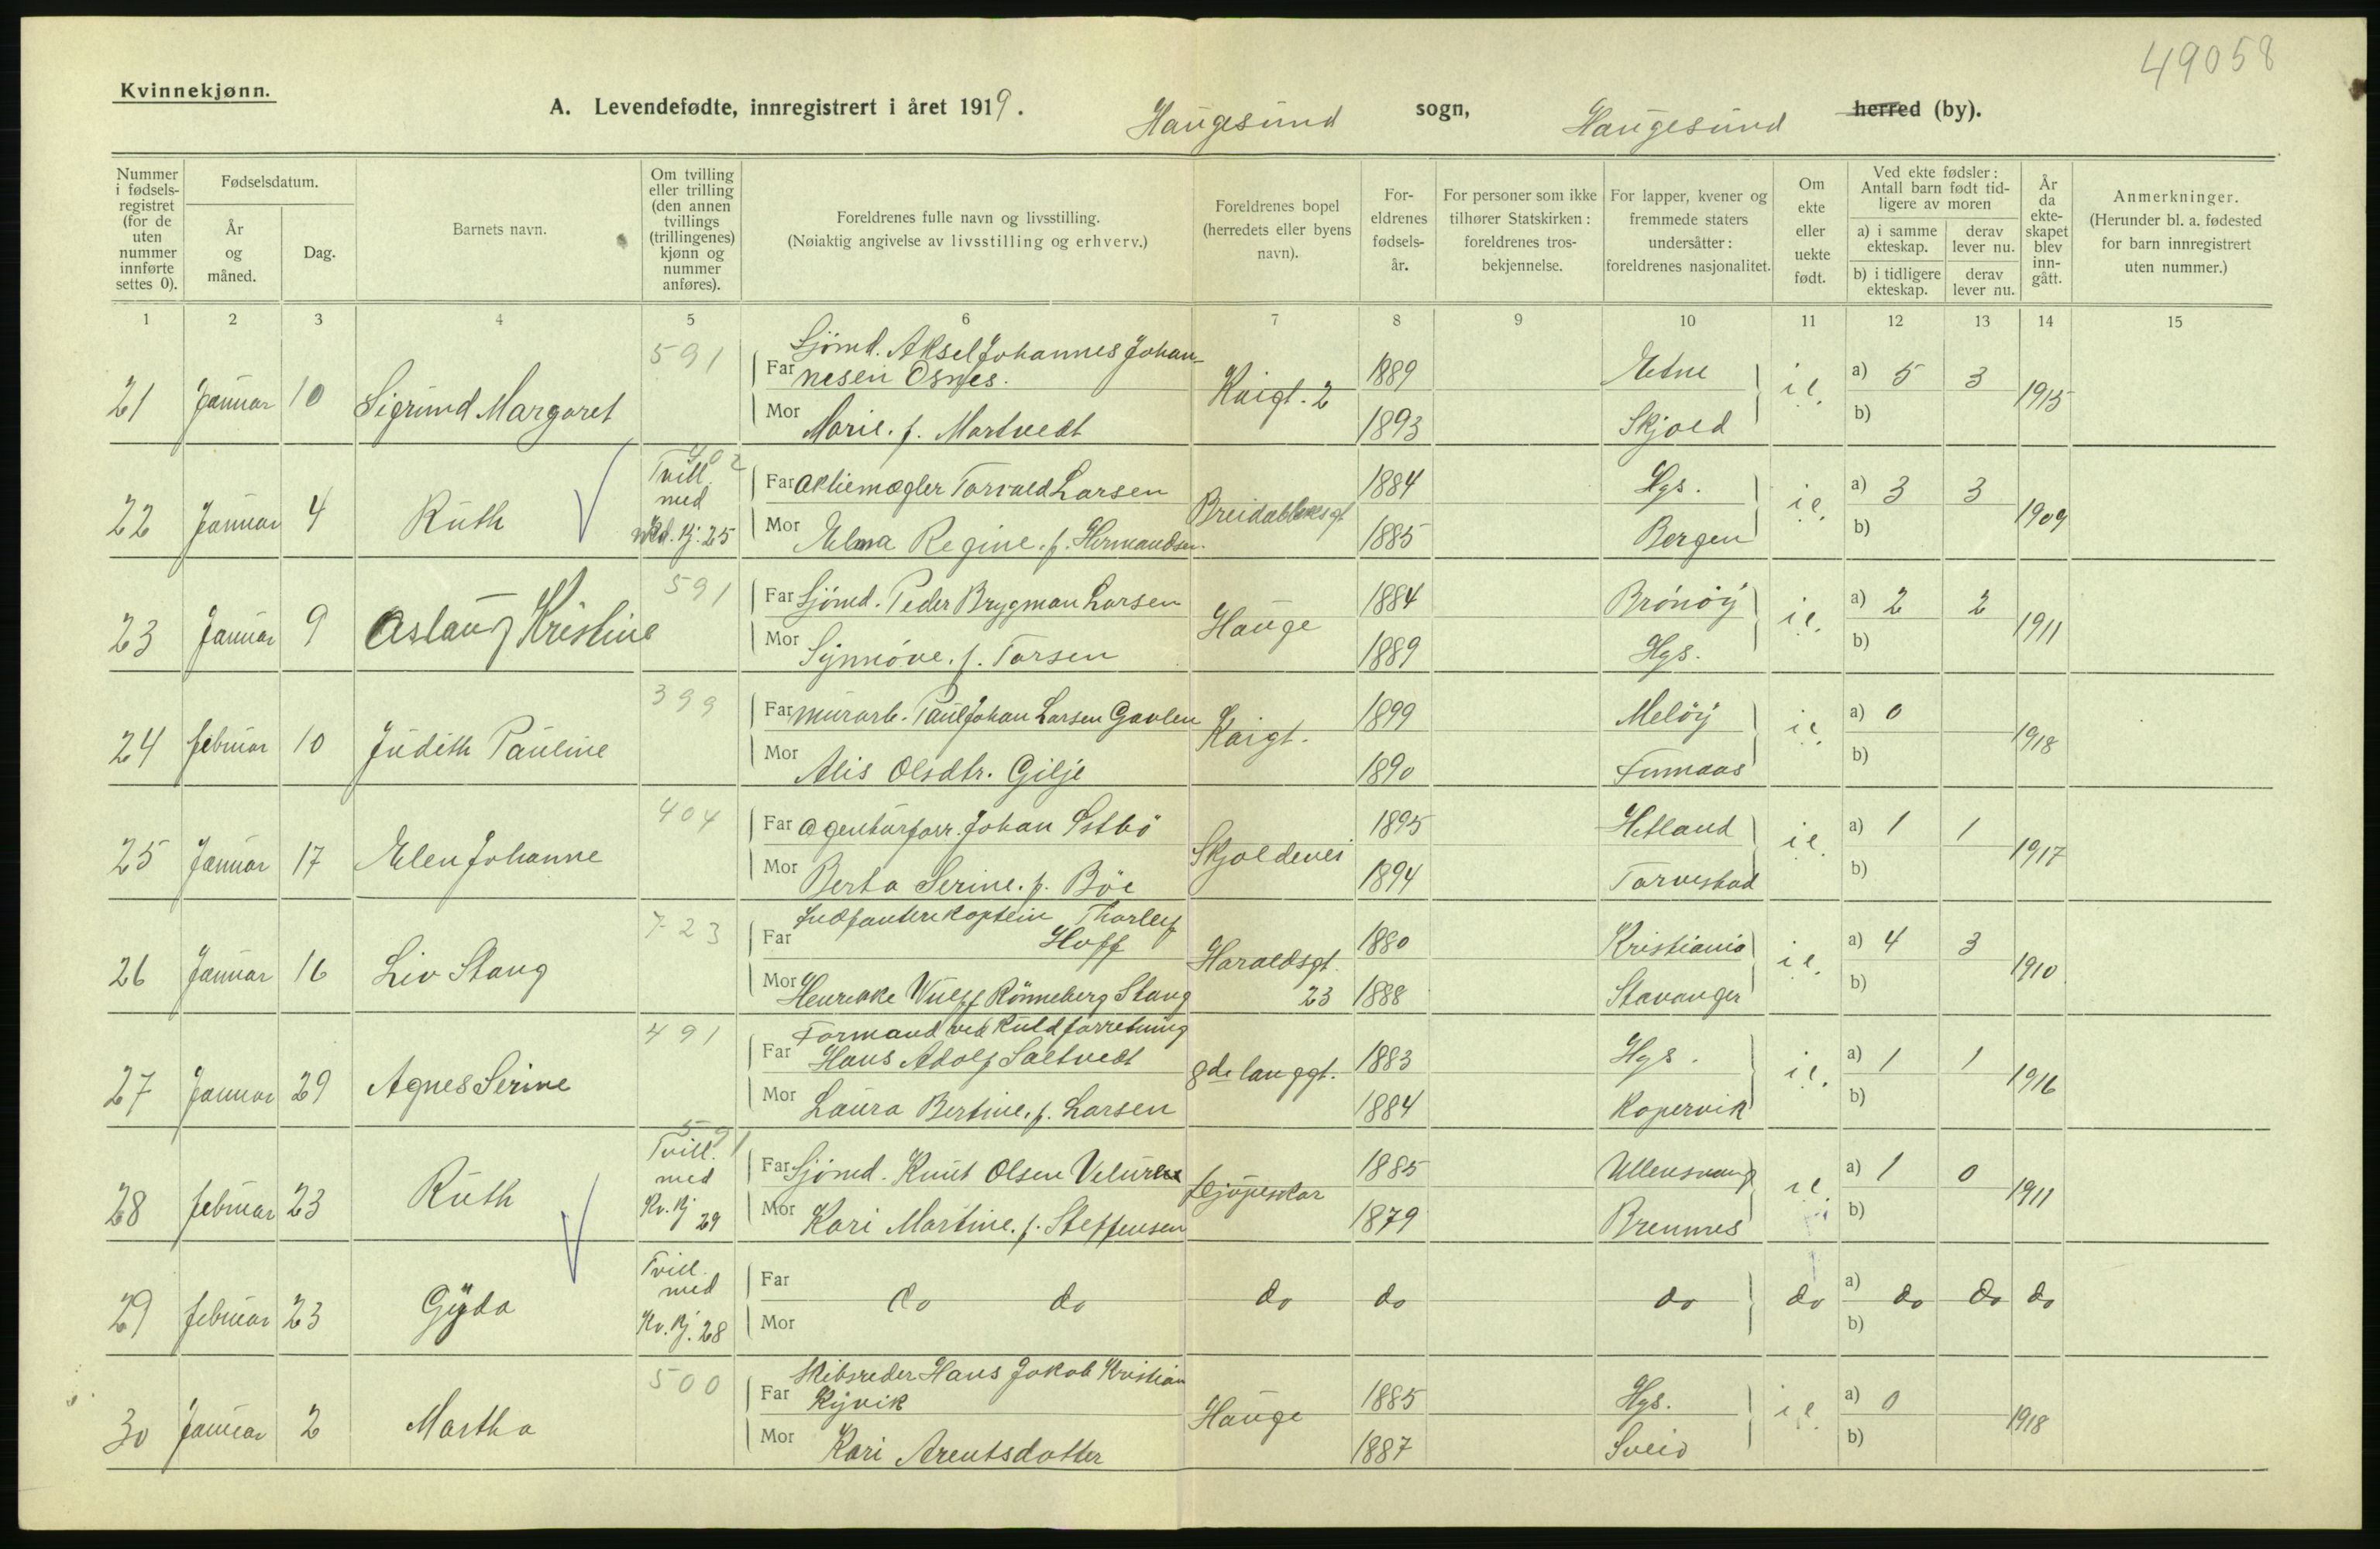 49058
Kvinnekjønn.
A. Levendefødte, innregistrert i året 1919. Haugesund sogn, Haugesund herred (by).
Nummer i fødselsregistret (for de uten nummer innførte settes 0).
Fødselsdatum.
År og måned.
Dag.
Barnets navn.
Om tvilling eller trilling (den annen tvillings (trillingenes) kjønn og nummer anføres).
Foreldrenes fulle navn og livsstilling.
(Nøiaktig angivelse av livsstilling og erhverv.)
Foreldrenes bopel (herredets eller byens navn).
Foreldrenes fødselsår.
For personer som ikke tilhører Statskirken: foreldrenes trosbekjennelse.
For lapper, kvener og fremmede staters undersåtter: foreldrenes nasjonalitet.
Om ekte eller uekte født.
Ved ekte fødsler: Antall barn født tidligere av moren
a) i samme ekteskap.
derav lever nu.
b) i tidligere ekteskap.
derav lever nu.
År da ekteskapet blev inngått.
Anmerkninger.
(Herunder bl. a. fødested for barn innregistrert uten nummer.)
1 2 3 4 5 6 7 8 9 10 11 12 13 14 15
591
21 Januar 10 Sigrund Margaret
Far Sjömd. Aksel Johannes Johannesen Osnes. Kaigt. 2 1889 Etne i e. a) 5 3 1915
Mor Marie. f. Martvedt 1893 Skjold b)
402
22 Januar 4 Ruth Tvill. med Kj. 25
Far Aktiemægler Torvald Larsen Breidabliksgt 1884 Hgs. i e. a) 3 3 1909
Mor Elma Regine. f. Hermandsen. 1885 Bergen b)
591
23 Januar 9 Aslaug Kristine
Far Sjömd. Peder Brygman Larsen Hauge 1884 Brönöy i e. a) 2 2 1911
Mor Synnöve. f. Torsen 1889 Hgs. b)
399
24 februar 10 Judith Pauline
Far murarb. Paul Johan Larsen Gavlen Kaigt. 1899 Melöy i e. a) 0 1918
Mor Alis Olsdtr. Gilje 1890 Finnaas b)
404
25 Januar 17 Elen Johanne
Far Agenturforr. Johan Östbö Skjoldevei 1895 Hetland i e. a) 1 1 1917
Mor Berta Serine. f. Böe 1894 Torvestad b)
723
26 Januar 16 Liv Stang
Far Indfanterikaptein Thorleif Hoff Haraldsgt. 23 1880 Kristiania i e. a) 4 3 1910
Mor Henrikke Wulff Rönneberg Stang 1888 Stavanger b)
491
27 Januar 29 Agnes Serine
Far Formand ved Kuldforretning Hans Adolf Saltvedt gde langgt. 1883 Hgs. i e. a) 1 1 1916
Mor Laura Bertine. f. Larsen 1884 Kopervik b)
591
28 februar 23 Ruth Tvill. med Kv. Kj 29
Far Sjömd. Knut Olsen Veluren 1885 Ullensvang i e. a) 1 0 1911
Mor Kari Martine. f. Steffensen 1879 Bremnes b)
29 februar 23 Gyda Tvill. med Kv. Kj. 28
Far do do do do do do a) do do do
Mor b)
500
30 Januar 2 Martha
Far Skibsreder Hans Jakob Kristian Kyvik Hauge 1885 Hgs. i e. a) 0 1918
Mor Kari Arentsdotter 1887 Sveio b)